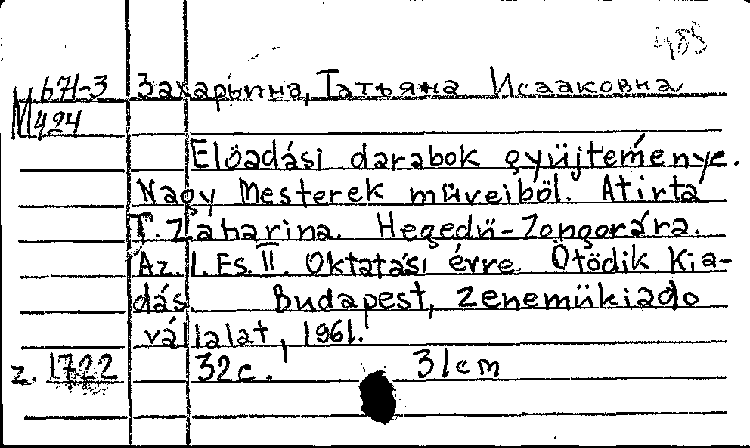 485
671-3 Захарьина, Татьяна Исааковна
М424
Elöadási darabok gyüjteménye.
Nagy Mesterek müveiböl. Atirta
T. Zaharina. Hegedü-Zongorára.
Az. I. Es. II. Oktatási évre. Ötödik kia-
dás. Budapest, Zenemükiado
vállalat, 1961.
z. 1722 32c. 31cm